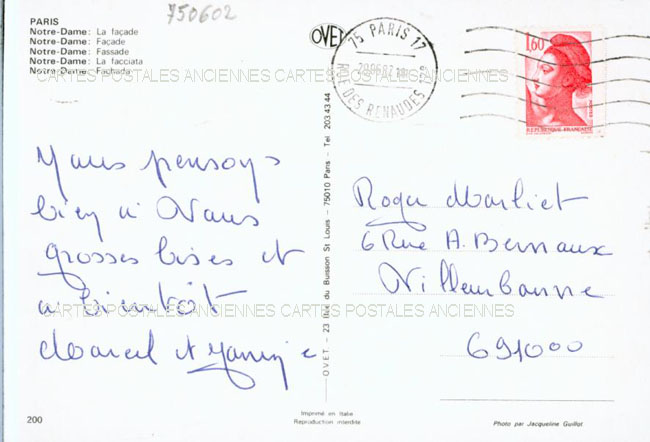 750602
PARIS
Notre-Dame: La façade
Notre-Dame: Façade
Notre-Dame: Fassade
Notre-Dame: La facciata
Notre-Dame: Fachada
OVET
75 PARIS 17
DES RENAUDES
1,60
REPUBLIQUE FRANÇAISE
CARTES POSTALES ANCIENNES CARTES POSTALES ANCIENNES
Nous pensons
bien à Vous
grosses bises et
a bientôt
Marcel et
OVET - 23 Rue du Buisson St Louis - 75010 Paris - Tel 203 43 44
Roger Marliet
6 Rue A. Bernaux
Villeurbanne
691000
CARTES POSTALES ANCIENNES CARTES POSTALES ANCIENNES
200
Imprimé en Italie
Reproduction interdite
Photo par Jacqueline Guillot